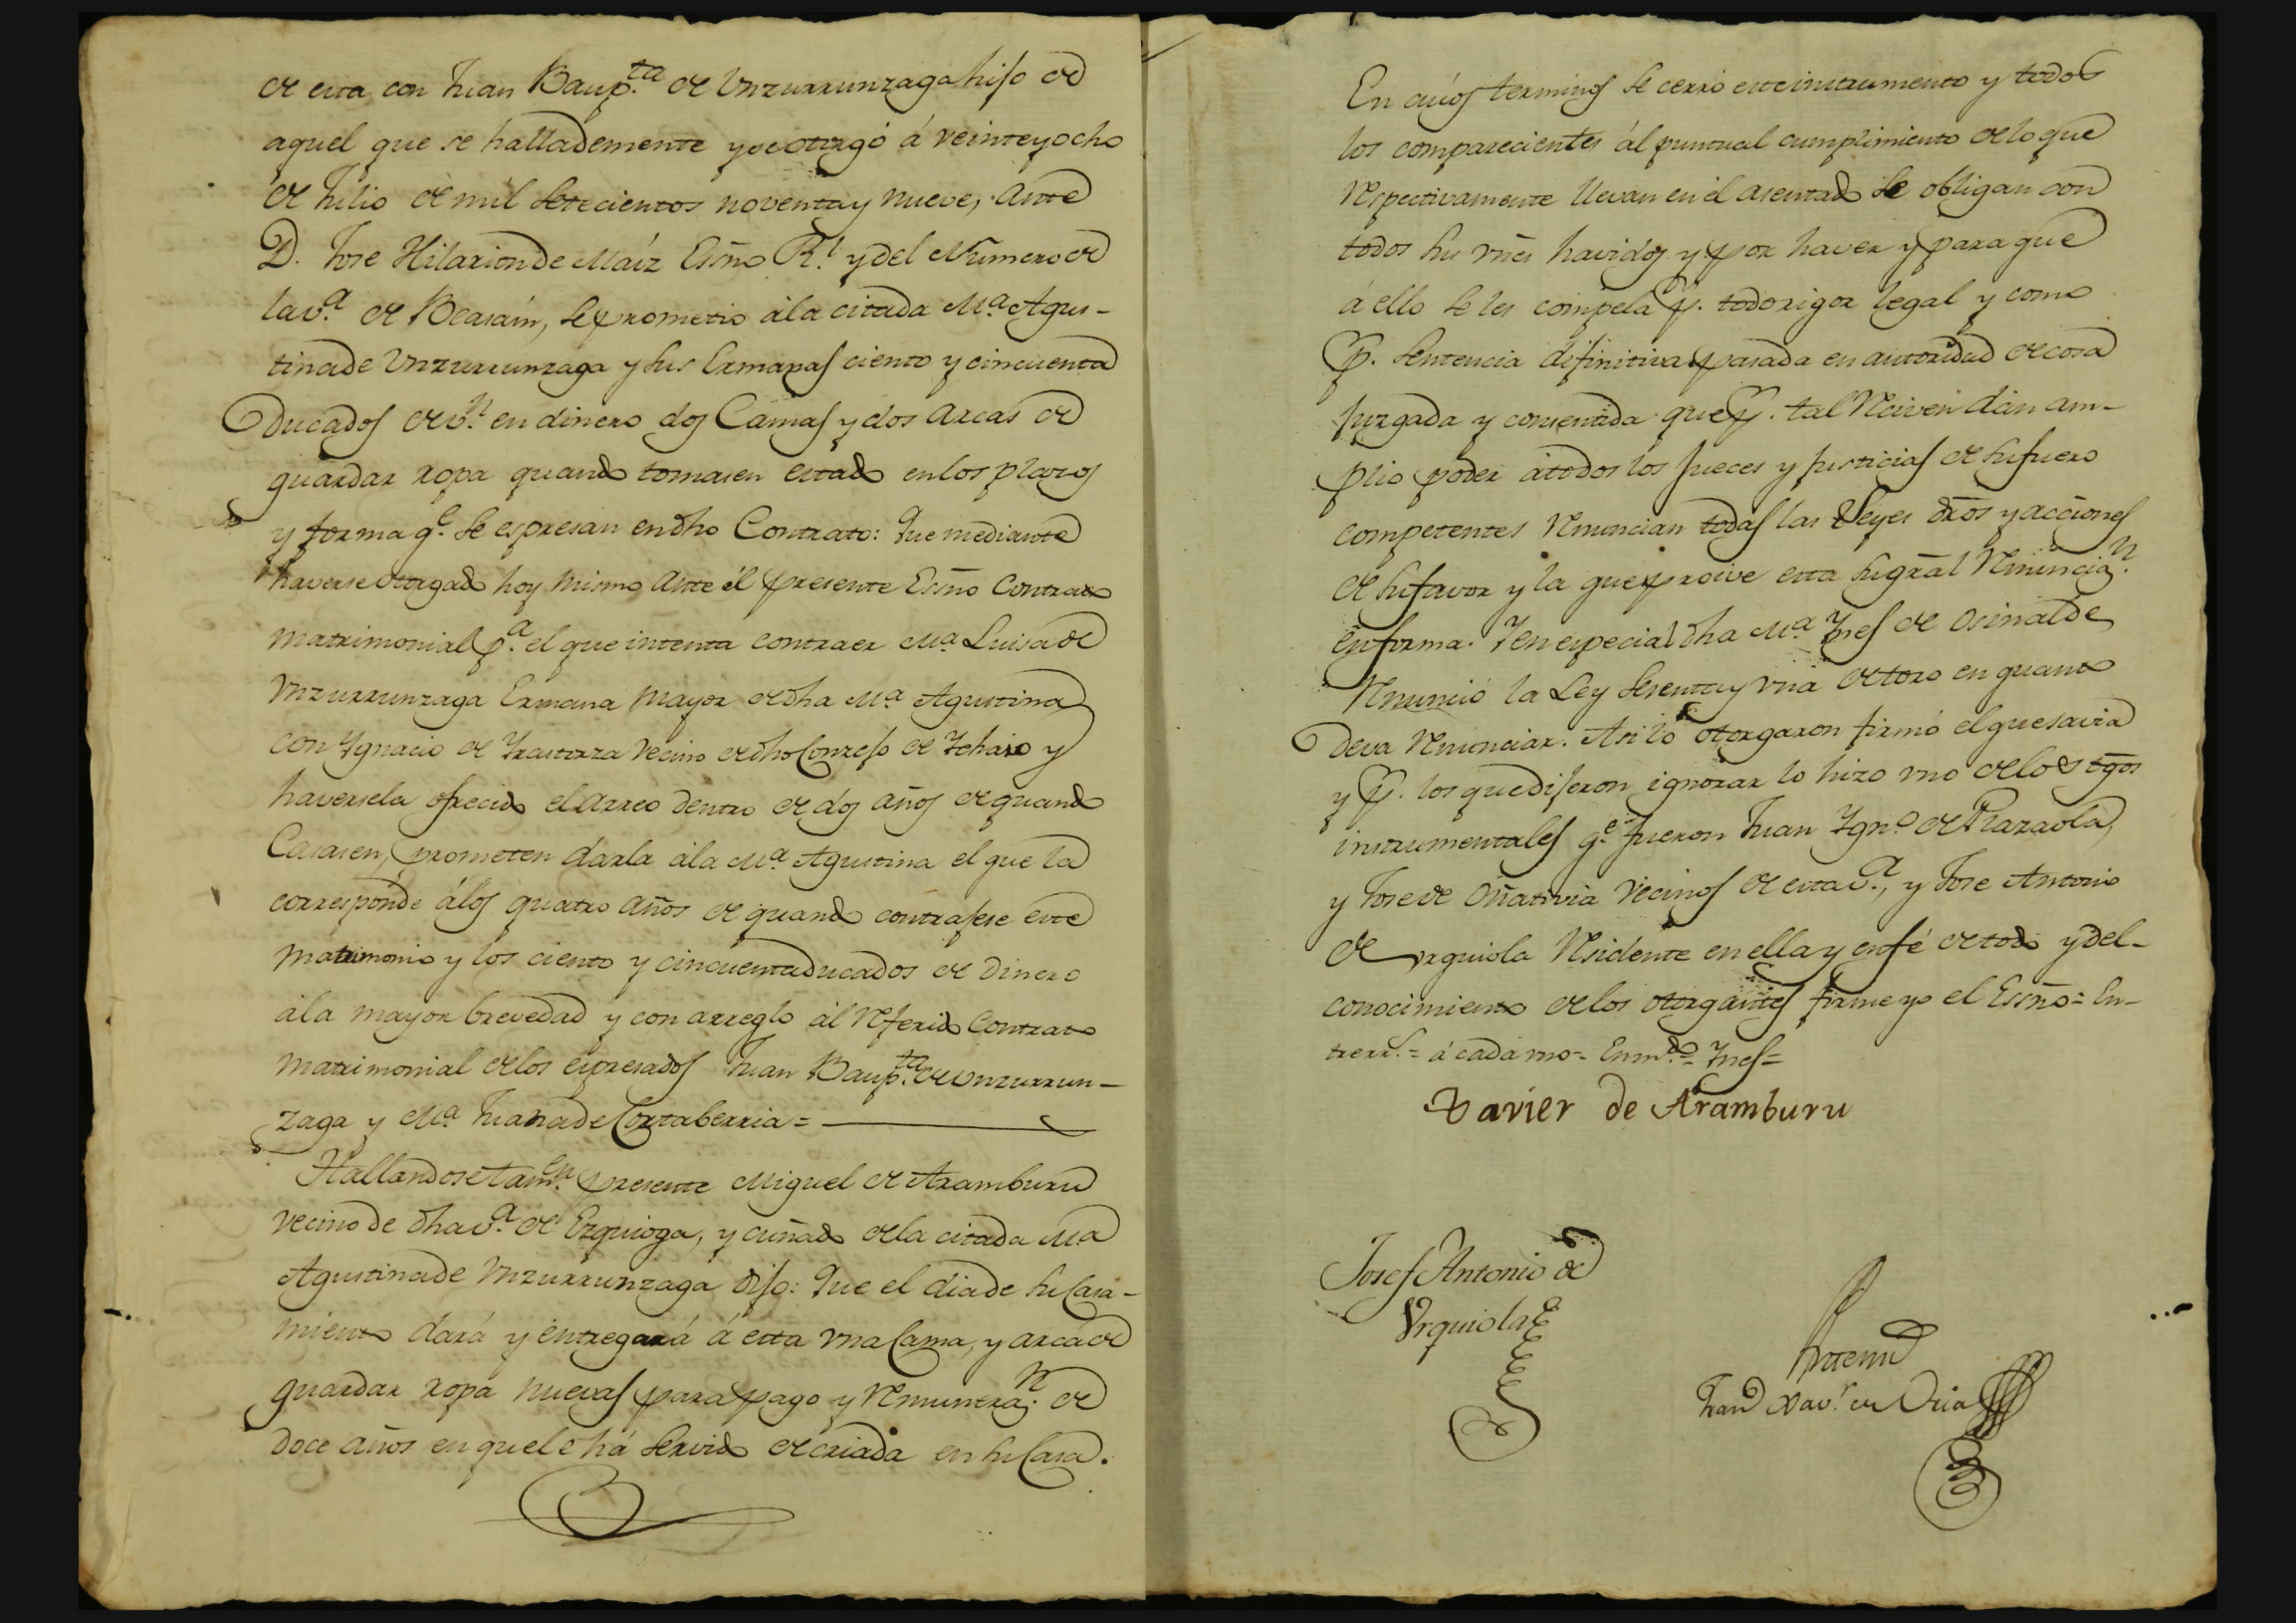 de esta con Juan Baup.ta de Unzurrunzaga hijo de
aquel que se halla demente y se otorgó á veinte y ocho
de Julio de mil Setecientos noventa y nueve, ante
D. Jose Hilarion de Maíz Essno R.l y del Numero de
la v.a de Beasaín, se prometio á la citada M.a Agus-
tina de Unzurrunzaga y sus Ermanas ciento y cincuenta
Ducados de v.n en dinero dos Camas y dos arcas de
guardar ropa quando tomasen estado en los plazos
y forma q.e se espresan en dho Contrato: Que mediante
haverse otorgado hoy mismo ante él presente Essno Contrato
matrimonial p.a el que intenta contraer M.a Luisa de
Unzurrunzaga Ermana mayor de dha M.a Agustina
con Ygnacio de Yrastorza vecino de dho Conzejo de Ychaso y
haversela ofrecido el arreo dentro de dos años de quando
Casasen, prometen darla á la M.a Agustina el que la
corresponde á los quatro años de quando contrajese este
matrimonio y los ciento y cincuenta ducados de dinero
á la mayor brevedad y con arreglo al referido Contrato
matrimonial de los espresados Juan Baup.ta de Unzurrun-
zaga y M.a Juana de Cortaberria=
Hallandose tam.en presente Miguel de Aramburu
vecino de dha v.a de Ezquioga, y cuñado de la citada M.a
Agustina de Unzurrunzaga dijo: Que el dia de su Casa-
miento dará y entregará á esta una Cama, y arca de
guardar ropa nuevas para pago y remuntra.n de
doce años en que le há servido de criada en su Casa.
En cuios terminos se cerró este instrumento y todos
los comparecientes ál puntual cumplimiento de lo que
respectivamente llevan en él asentado se obligan con
todos sus vñes havidos y por haver y para que
á ello se les compela p. todo rigor legal y como
p. Sentencia difinitiva pasada en autoridad de cosa
Juzgada y consentida que p. tal reciven dán am-
plio poder á todos los Jueces y Justicias de su fuero
competentes renuncian todas las Leyes dros y acciones
de su favor y la que proive esta su gral renuncia.n
en forma. Y en especial dha M.a Ynes de Osinalde
renunció la Ley Sesenta y una de toro en quanto
deva renunciar. Asi lo otorgaron firmó el que savia
y p. los que dijeron ignorar lo hizo uno de los tgos
instrumentales q.e fueron Juan Ygn.o de Plazaola,
y Jose de Oñativia vecinos de esta v.a, y Jose Antonio
de Urquiola residente en ella y en fé de todo y del
conocimiento de los otorgantes firme yo el Essno= En-
trerr.s= á cada uno= Enm.do= Ynes=
Xavier de Aramburu
Josef Antonio de
Urquiola
Antemi
Fran.co Xav.r de Oria